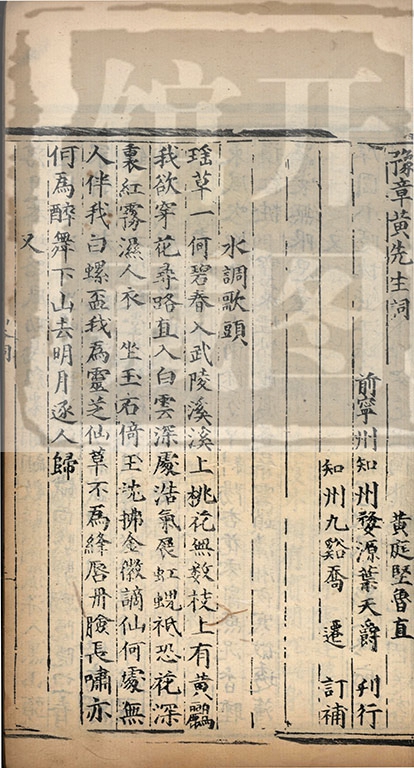 豫章黃先生詞 黃庭堅魯直
前寧州知州婺源葉天爵 刋行
知州九谿喬 遷 訂補
水調歌頭
瑤草一何碧春入武陵溪溪上桃花無數枝上有黃鸝
我欲穿花尋路直入白雲深處浩氣展虹蜺祇恐花深
裏紅霧濕人衣 坐玉石倚玉沈拂金徽謫仙何處無
人伴我白螺盃我為靈芝仙草不為絳唇丹臉長嘯亦
何為醉舞下山去明月逐人歸
又